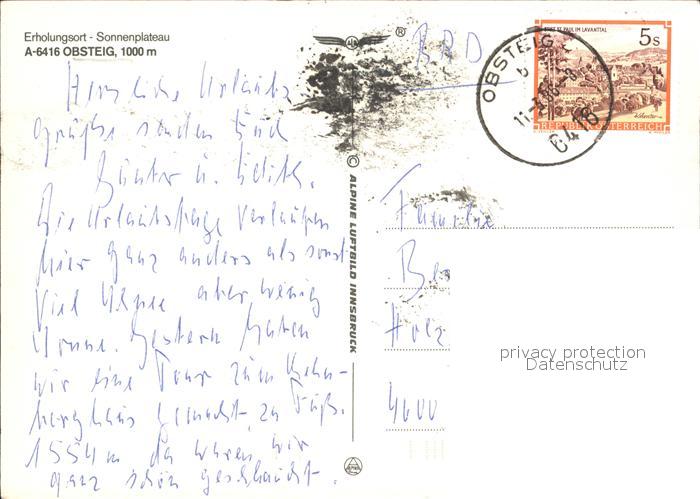 Erholungsort - Sonnenplateau
A-6416 OBSTEIG, 1000 m
Herzliche Urlaubs
grüße senden Euch
Günter u. Edith.
Die Urlaubstage verlaufen
hier ganz anders als sonst
viel aber wenig
Sonne. Gestern haben
wir eine Tour zum Lehn-
berghaus gemacht, zu Fuß.
1554m da waren wir
ganz schön geschlaucht.
© ALPINE LUFTBILD INNSBRUCK
®
BRD
OBSTEIG
STIFT ST. PAUL IM LAVANTTAL
5s
REPUBLIK ÖSTERREICH
Familie
Be
Holz
4000
privacy protection
Datenschutz